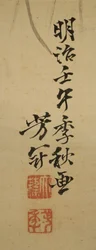 明治壬午季秋画
芳年